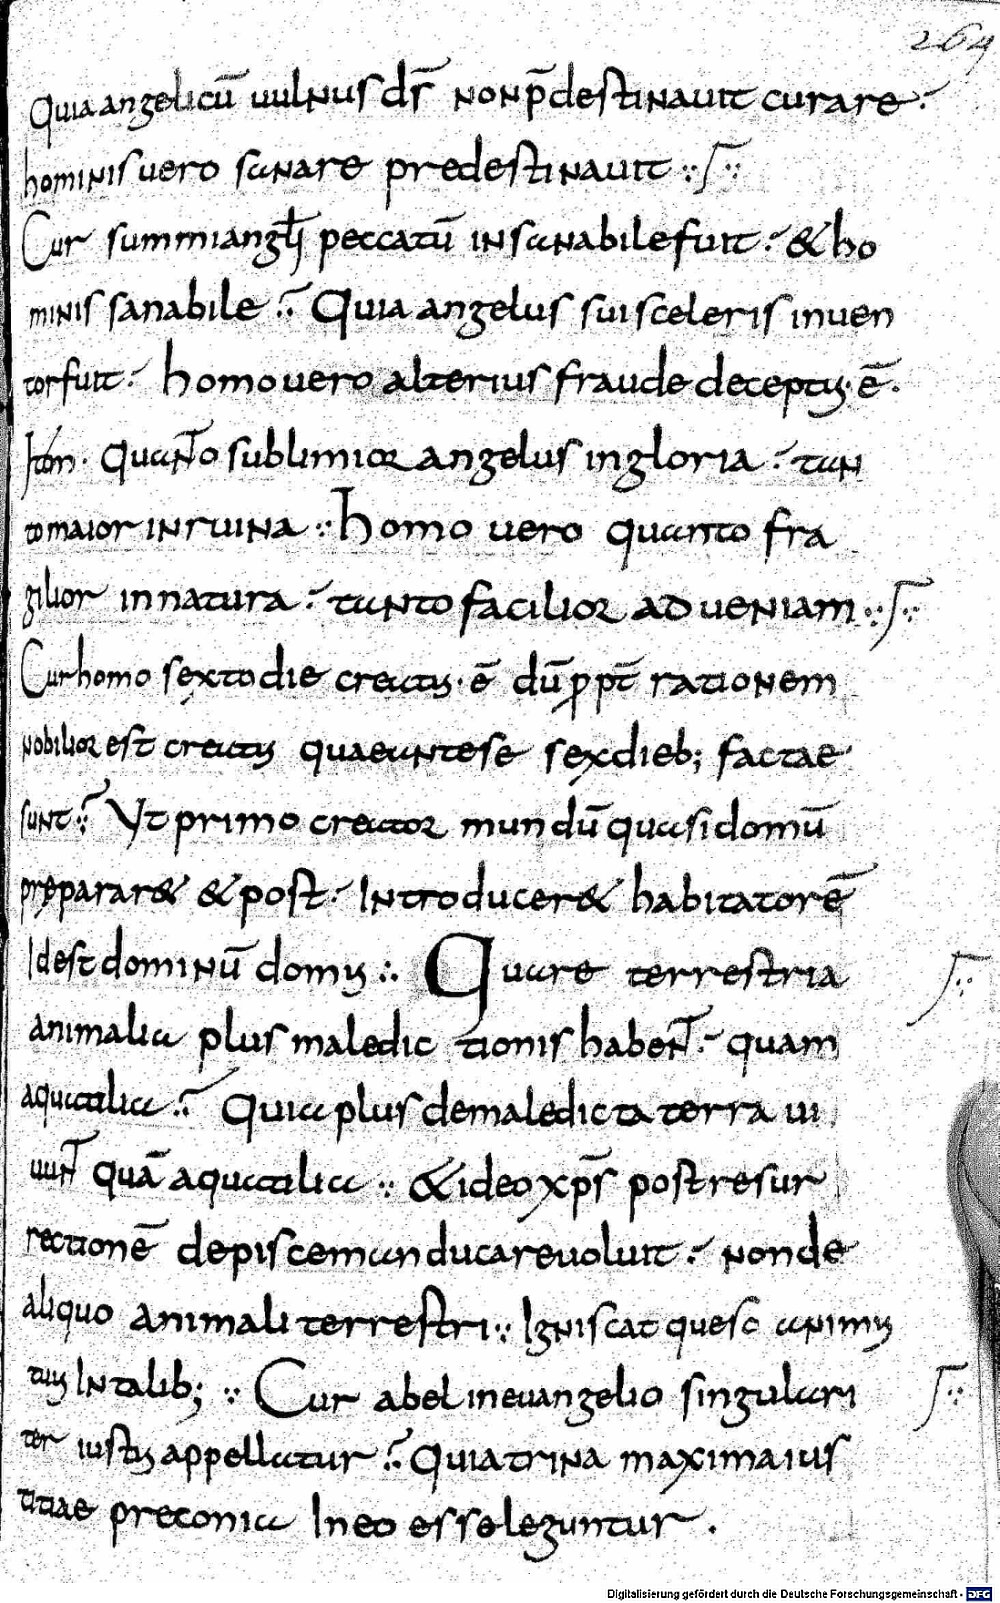 264
Quia angelicū uulnus dſ̄ non p̄destinauit curare.
hominis uero sanare predestinauit :. ſ :.
Cur summi angłi peccatū insanabile fuit. & ho
minis sanabile. Quia angelus sui sceleris inuen
tor fuit. homo uero alterius fraude deceptus. ē.
Item. Quanto sublimior angelus in gloria. tan
to maior in ruina :. homo uero quanto fra
gilior in natura. tanto facilior ad ueniam :. ſ :.
Cur homo sexto die creatus. ē dū ꝓpt̄ rationem
nobilior est creatus quae ante se sex dieb; factae
sunt. Vt primo creator mundū quasi domū
prepararet & post. Introduceret habitatorē
Id est dominū domus :. Quare terrestria
animalia plus maledictionis haben̄t. quam
aquatilia. Quia plus de maledicta terra ui
uun̄t quā aquatilia :. & ideo xp̄s post resur
rectionē de pisce manducare uoluit. non de
aliquo animali terrestri :. Igniscat queso animus
tuus In talib; :. Cur abel in euangelio singulari
ter iustus appellatur. Quia trina maxima ius
titiae preconia In eo esse leguntur.
Digitalisierung gefördert durch die Deutsche Forschungsgemeinschaft - DFG